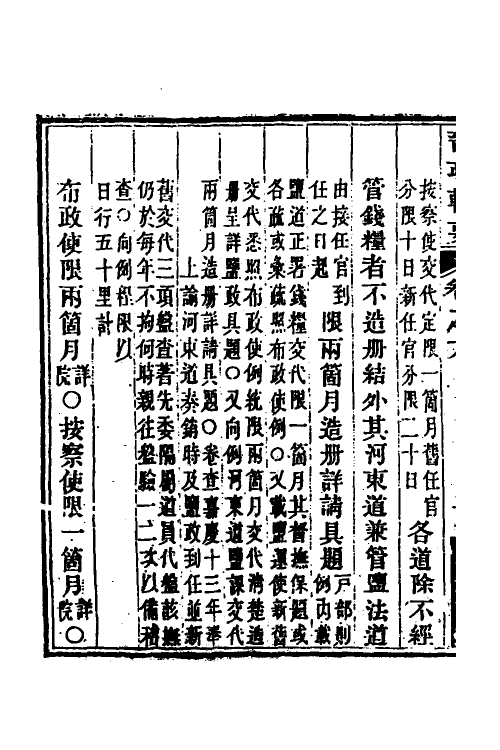 晉政輯要 卷之六
按察使交代定限一箇月舊任官
分限十日新任官分限二十日
各道除不經
管錢糧者不造册結外其河東道兼管鹽法道
由接任官到
任之日起
限兩箇月造册詳請具題
戸部則
例內載
鹽道正署錢糧交代限一箇月其督撫保題或
各政或彙疏照布政使例○又載鹽運使新舊
交代悉照布政使例統限兩箇月交代清楚造
册呈詳鹽政具題○又向例河東道鹽課交代
兩箇月造册詳請具題○卷查嘉慶十三年奉
上諭河東道奏銷時及鹽政到任並新
舊交代三項盤查著先委陽關道員代盤該撫
仍於每年不拘何時親往盤驗一二次以備稽
查○向例程限以
日行五十里計
布政使限兩箇月
詳
院
○按察使限一箇月
詳
院
○